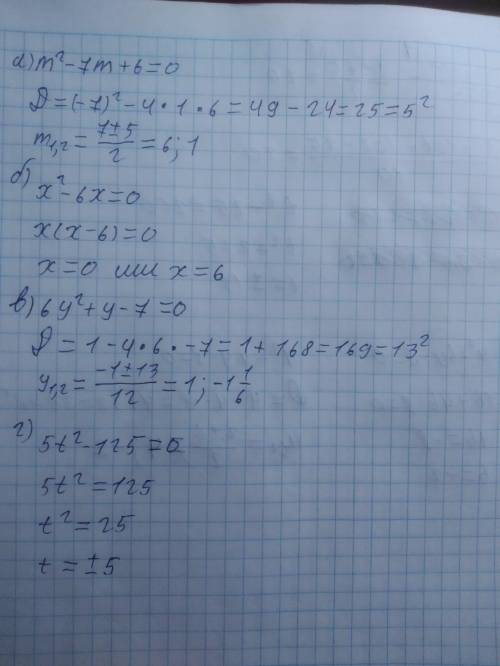 а) m² - 7m + 6 = 0
D = (-7)² - 4 · 1 · 6 = 49 - 24 = 25 = 5²
m₁,₂ = (7 ± 5)/2 = 6; 1
б) x² - 6x = 0
x(x - 6) = 0
x = 0 или x = 6
в) 6y² + y - 7 = 0
D = 1 - 4 · 6 · -7 = 1 + 168 = 169 = 13²
y₁,₂ = (-1 ± 13)/12 = 1; -1 1/6
г) 5t² - 125 = 0
5t² = 125
t² = 25
t = ± 5